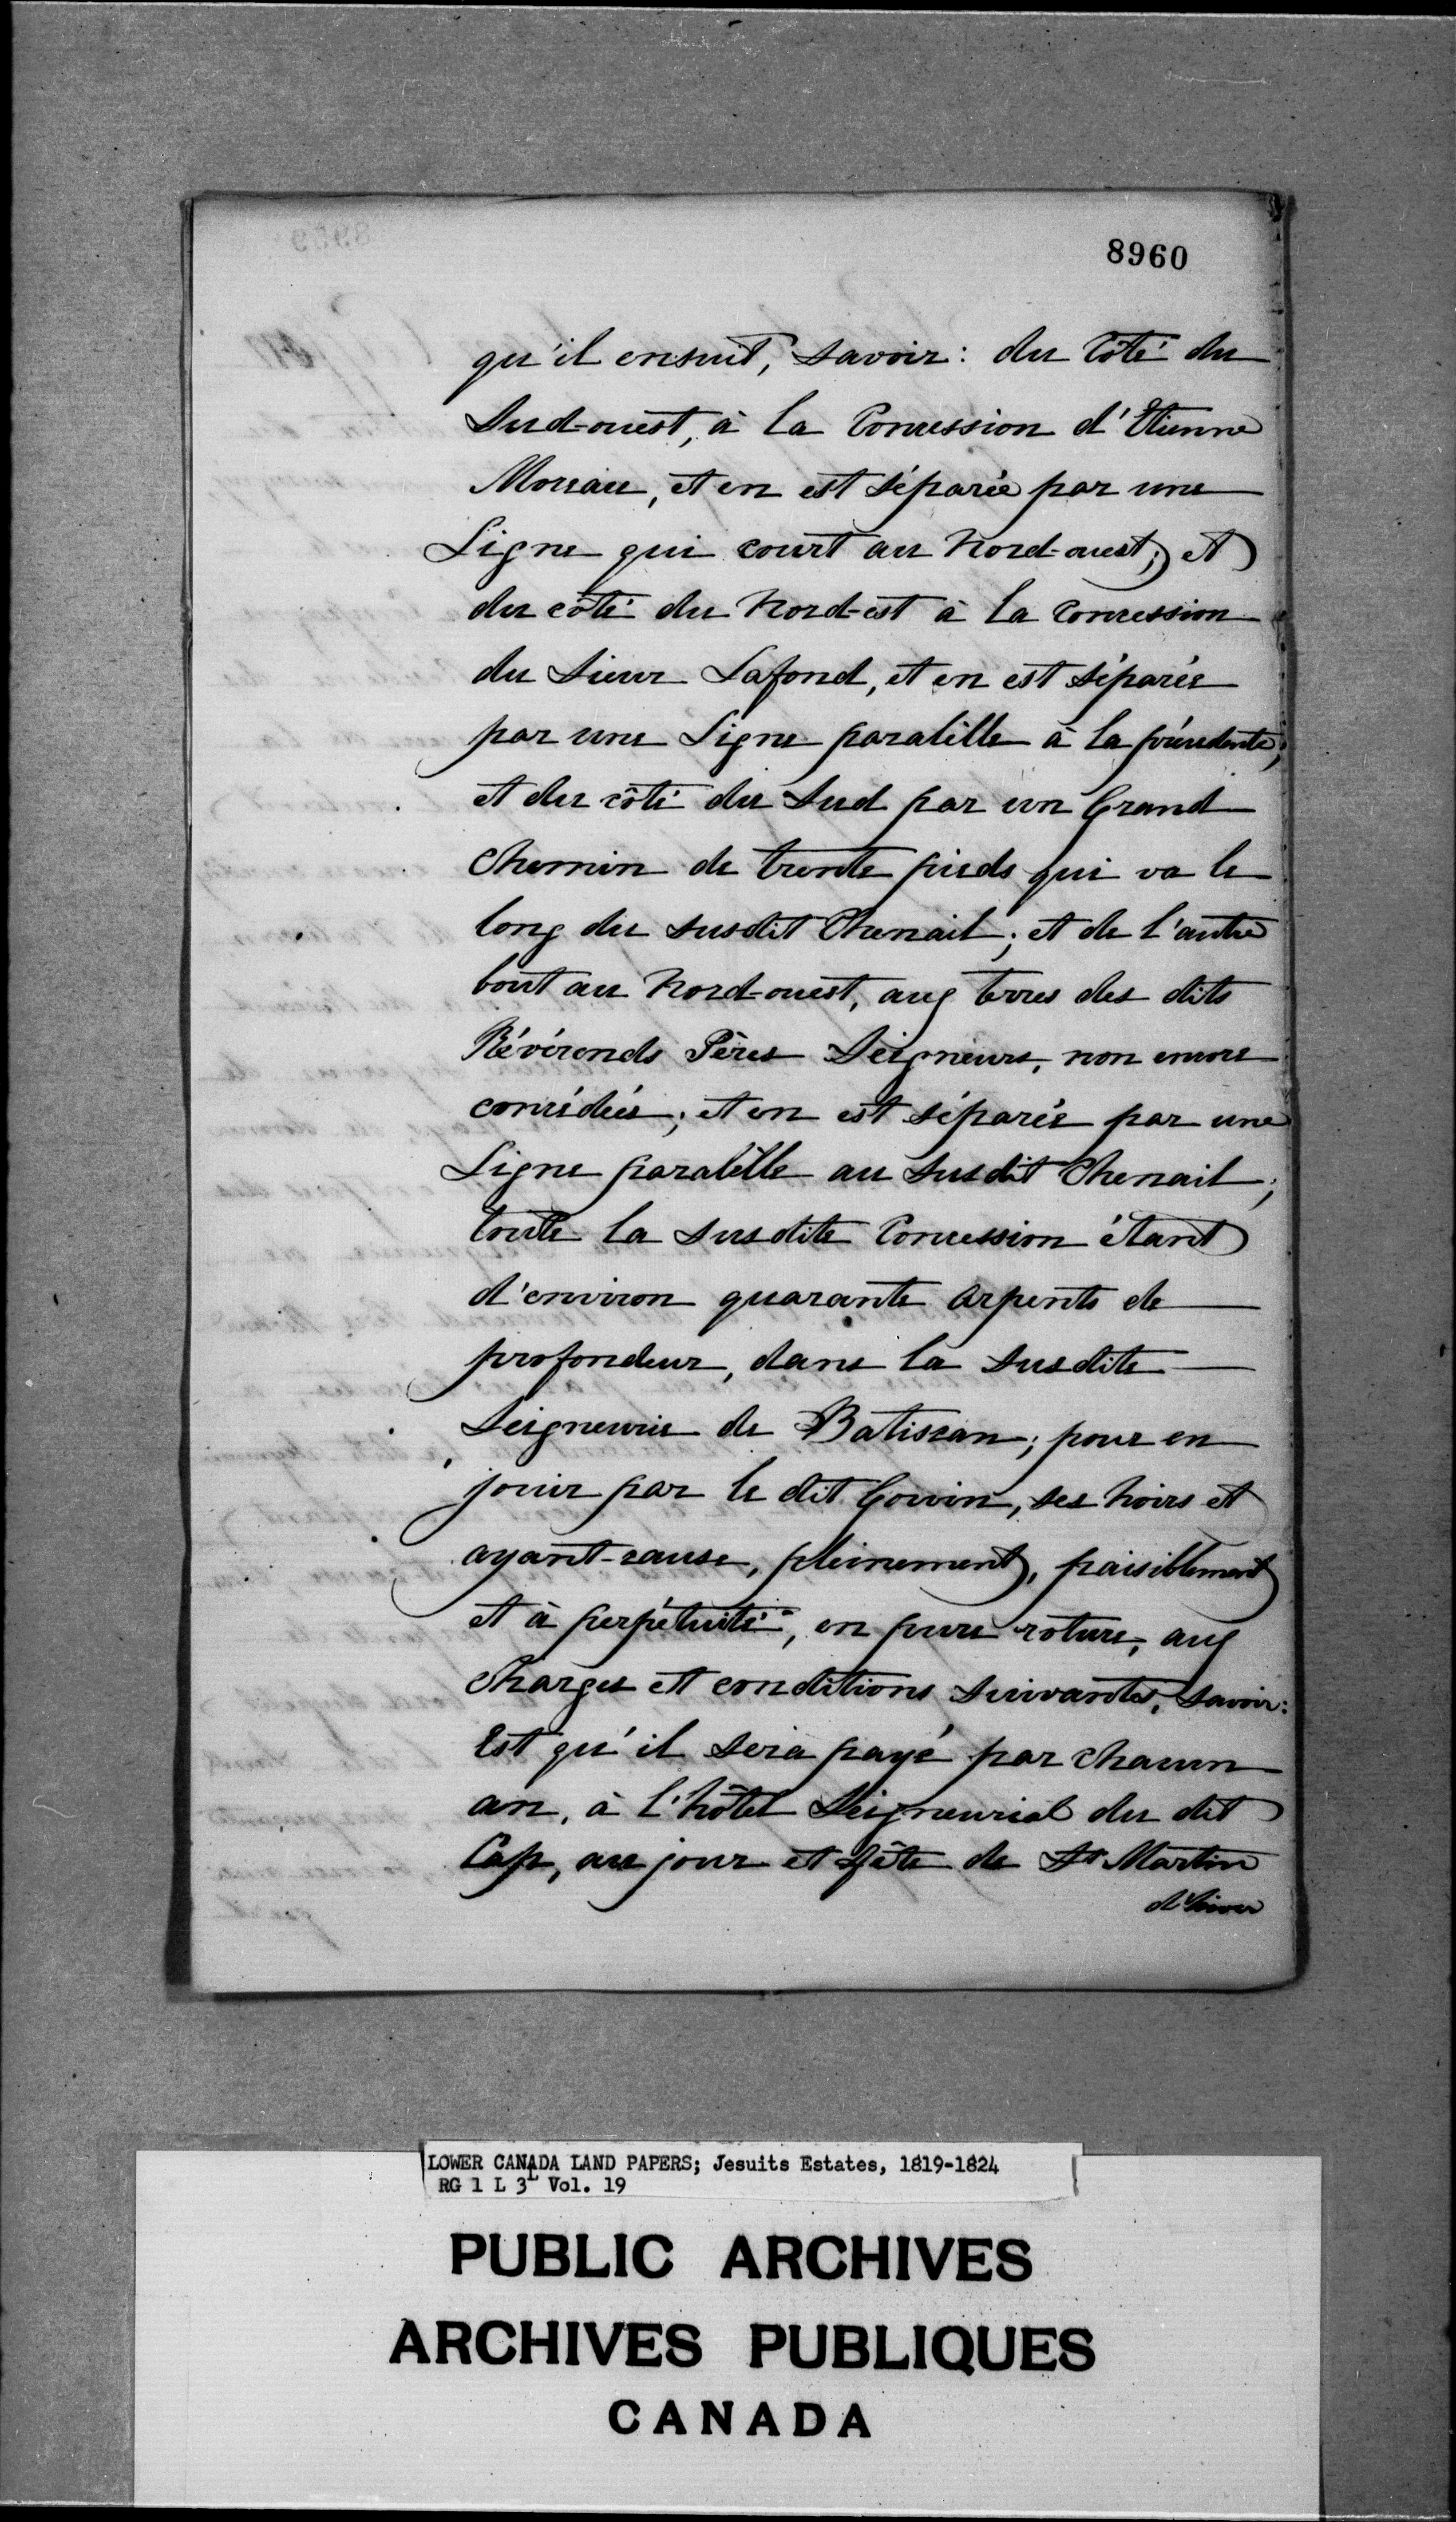 8960
qu'il ensuit, savoir: du Côté du
Sud-ouest, à la Concession d'Etienne
Moreau, et en est séparée par une
Ligne qui court au Nord-ouest; et
du côté du Nord-est à la Concession
du Sieur Lafond, et en est séparée
par une Ligne paralelle à la précédente;
et du côté du Sud par un Grand
Chemin de trente pieds qui va le
long du susdit Chenail; et de l'autre
bout au Nord-ouest, aux terres des dits
Révérends Pères Seigneurs, non encore
concédées; et en est séparée par une
Ligne paralelle au susdit Chenail;
toute la susdite Concession étant
d'environ quarante arpents de
profondeur, dans la susdite
Seigneurie de Batiscan; pour en
jouir par le dit Gouin, ses hoirs et
ayant-cause, pleinement, paisiblement
et à perpétuité, en pure roture, aux
Charges et conditions suivantes, savoir:
Est qu'il sera payé par chacun
an, à l'hôtel Seigneurial du dit
Cap, au jour et fête de St Martin
d'hiver
LOWER CANADA LAND PAPERS; Jesuits Estates, 1819-1824
RG 1 L 3L Vol. 19
PUBLIC ARCHIVES
ARCHIVES PUBLIQUES
CANADA